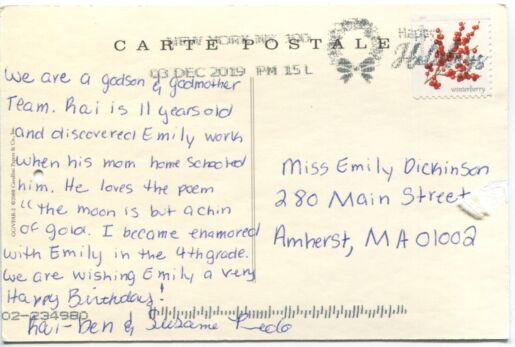 NEW YORK NY 100
CARTE POSTALE
03 DEC 2019 PM 15 L
Happy
Holidays
winterberry
We are a godson & godmother
Team. Rai is 11 years old
and discovered Emily work
when his mom home schooled
him. He loves the poem
"the moon is but a chin
of gold. I became enamored
with Emily in the 4th grade.
We are wishing Emily a very
Happy Birthday!
Rai-Ben &
Miss Emily Dickinson
280 Main Street
Amherst, MA 01002
02-234980